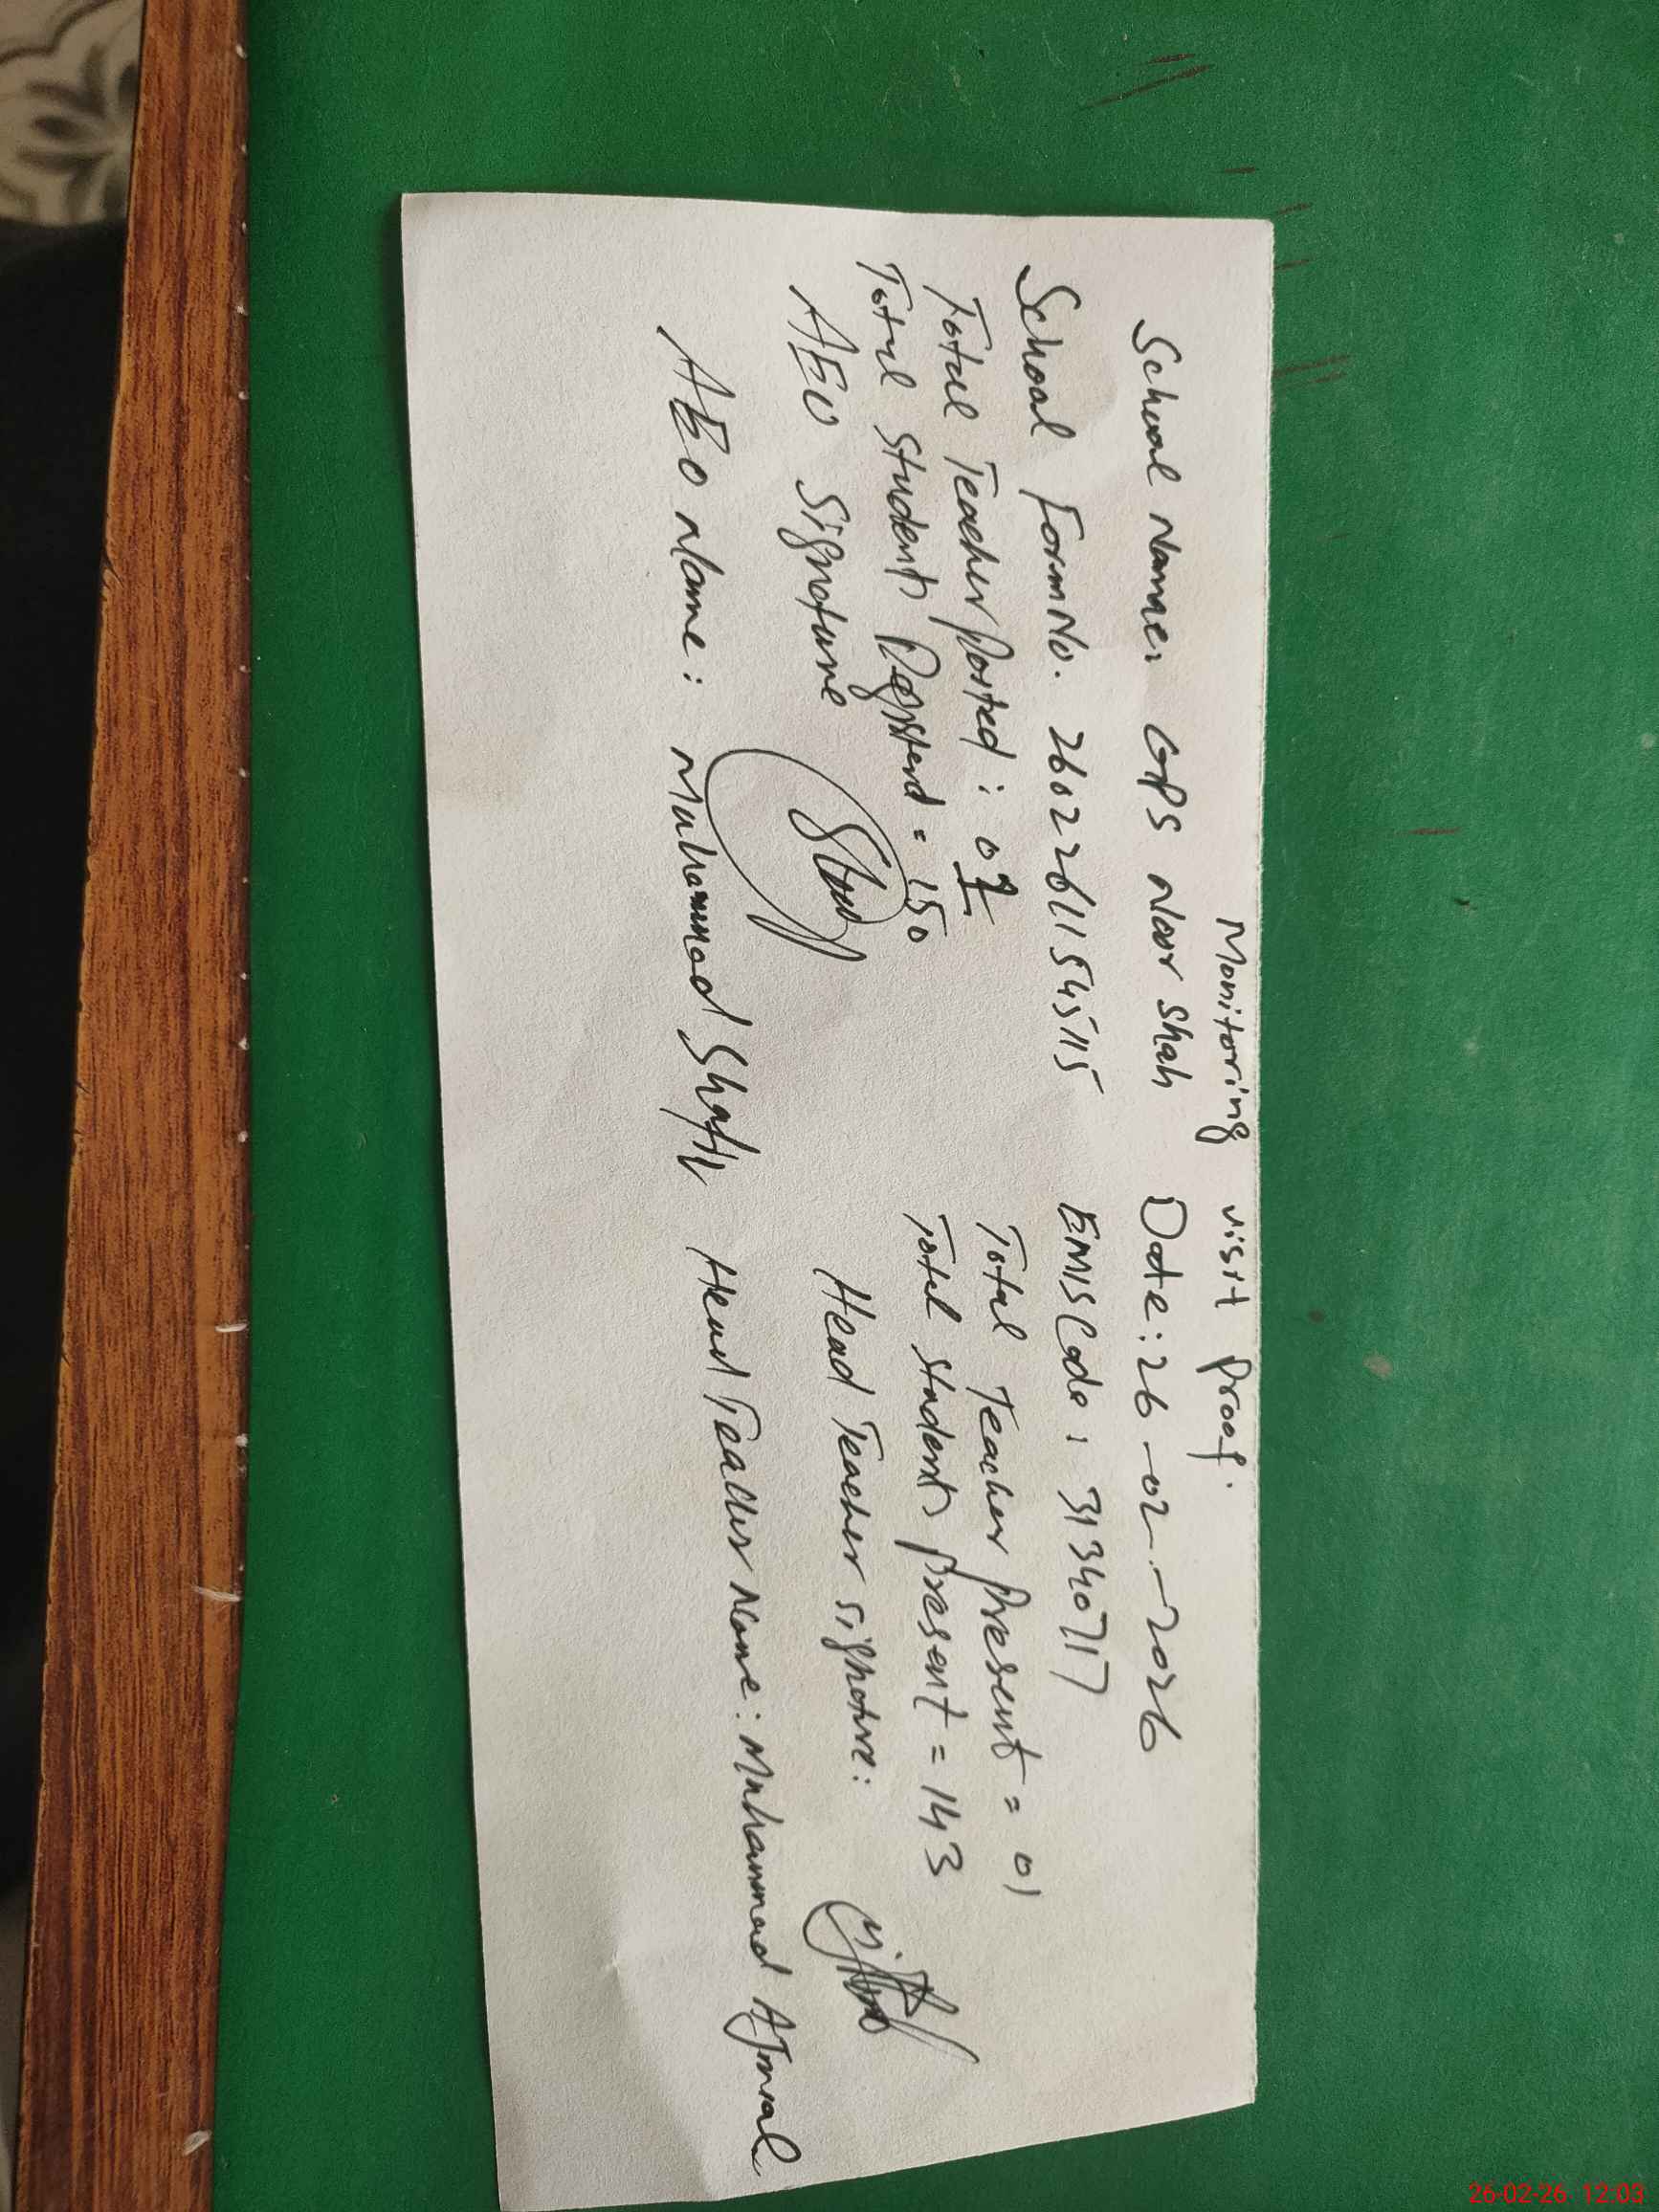 Monitoring visit proof.
School Name: GPS Noor Shah Date: 26-02-2026
School Form No. 26022611545115 EMIS Code: 31340717
Total Teacher Posted: Total Teacher Present = 01
Total Students Registerd = 150 Total Students Present = 143
AEO Signature Head Teacher signature:
AEO Name: Muhammad Shafiq Head Teacher Name: Muhammad Ajmal
26-02-26 12:03